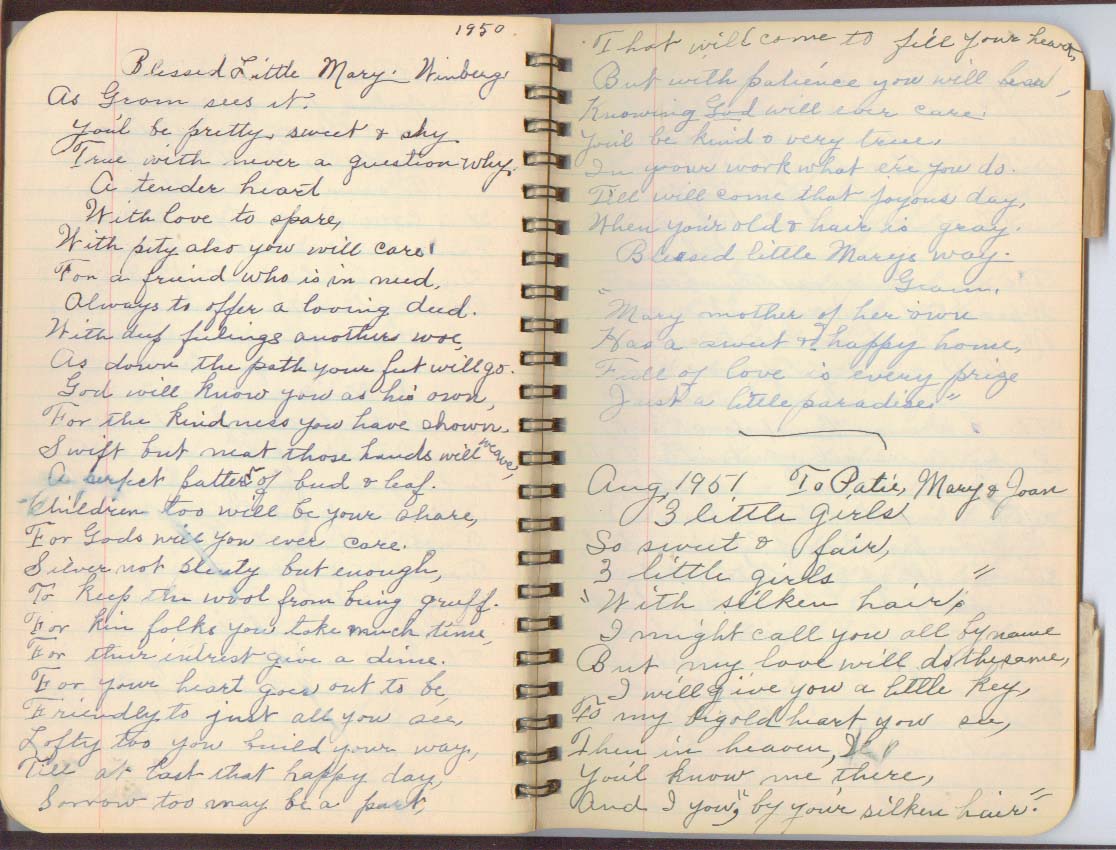 1950.
Blessed Little Mary. Winberg
As Gram sees it.
You'l be pretty, sweet & shy
True with never a question why,
A tender heart
With love to spare,
With pity also you will care
For a friend who is in need,
Always to offer a loving deed.
With deep feelings anothers woe,
As down the path your feet will go.
God will know you as his own,
For the kindness you have shown.
Swift but neat those hands will weave,
A perfect pattern of bud & leaf.
Children too will be your share,
For Gods will you ever care.
Silver not plenty but enough,
To keep the wool from being gruff.
For kin folks you take much time,
For their intrest give a dime.
For your heart goes out to be,
Friendly to just all you see,
Lofty too you build your way,
Till at last that happy day,
Sorrow too may be a part,
That will come to fill your heart,
But with patience you will bear,
Knowing God will ever care.
You'l be kind & very true,
In your work what e're you do.
Till will come that joyous day,
When your old & hair is gray.
Blessed little Marys way.
Gram.
"Mary mother of her own
Has a sweet & happy home,
Full of love is every prize
Just a little paradise."
Aug, 1951 To Patie, Mary & Joan
3 little girls
So sweet & fair,
3 little girls "
"With silken hair,
I might call you all by name
But my love will do the same,
I will give you a little key,
To my big old heart you see,
Then in heaven,
You'l know me there,
And I you", by your silken hair."